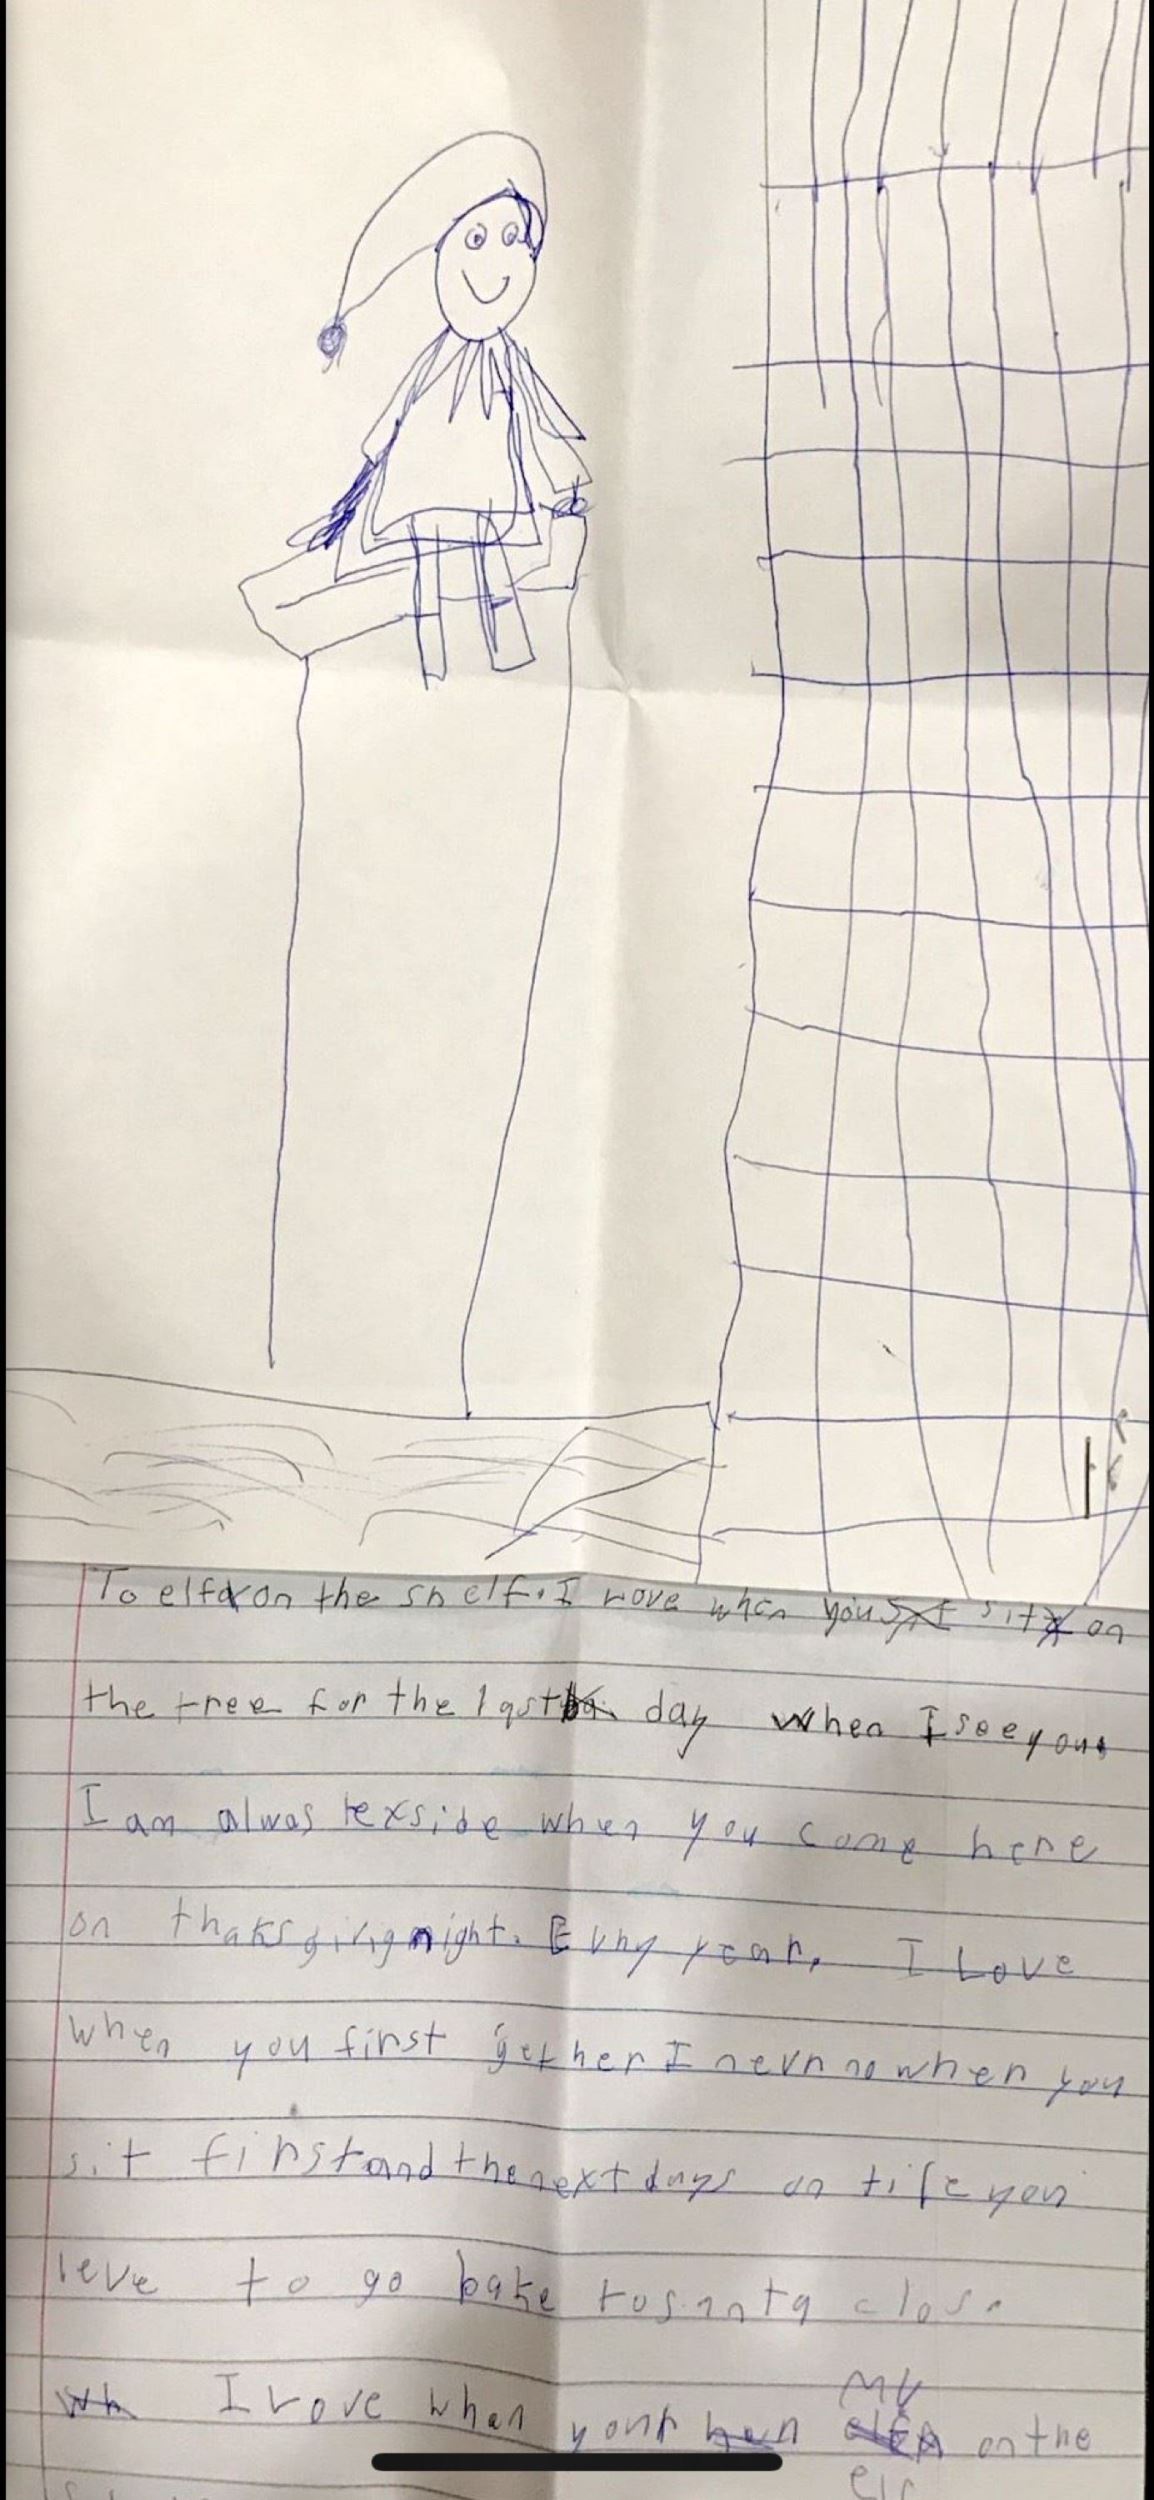 To elf on the shelf. I love when you sit on
the tree for the last day when I see you.
I am alwas exside when you come here
on thaksgiving night. Evny year. I Love
when you first get her I nevr no when you
sit first and the next days on tile you
leve to go bake to santa clos.
I Love when your my on the
elf